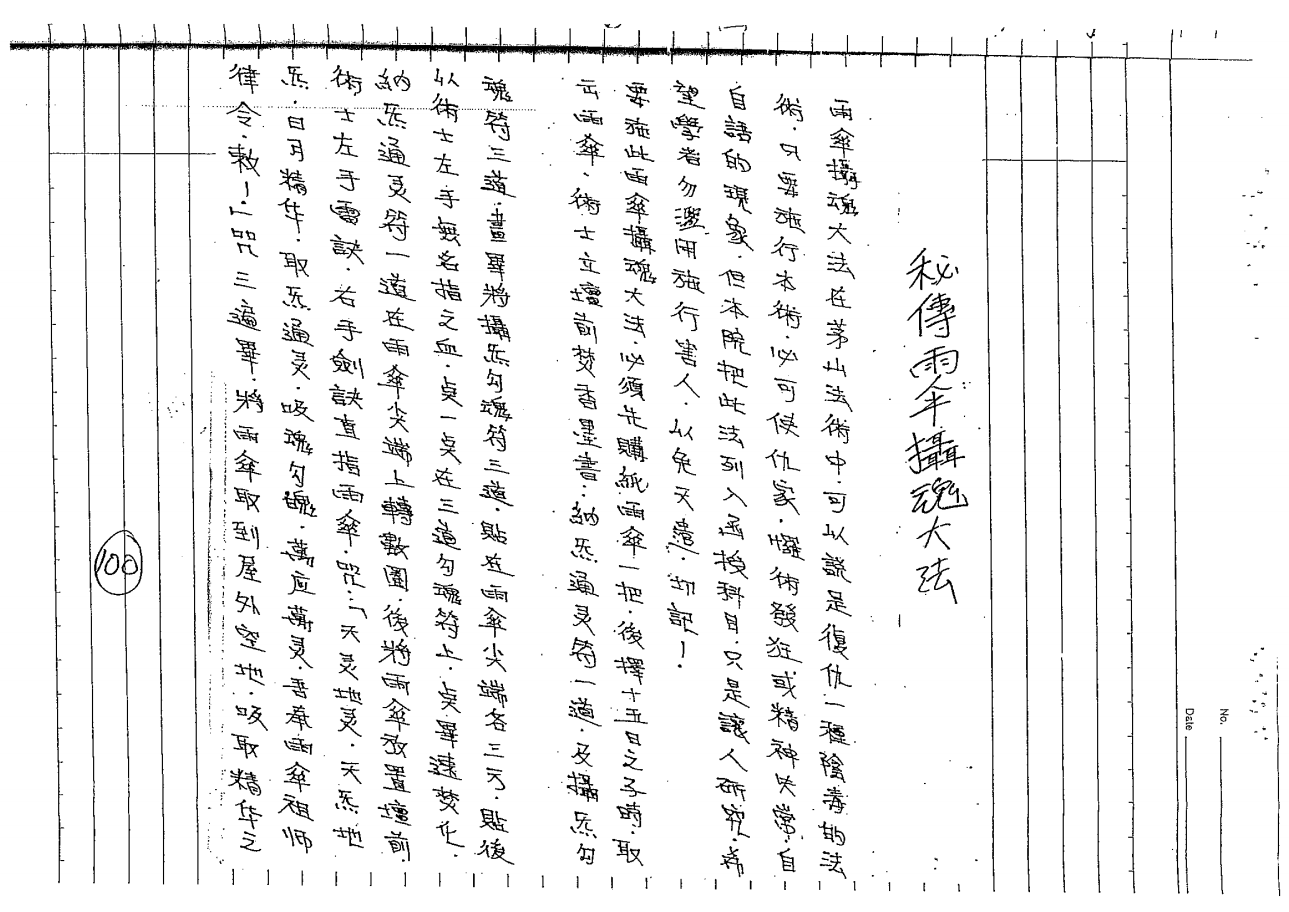 秘傳雨傘攝魂大法
雨傘攝魂大法在茅山法術中.可以說是復仇一種陰毒的法
術.只要施行本術.必可使仇家.懼術發狂.或精神失常.自言
自語的現象.但本院把此法列入函授科目.只是讓人研究.希
望學者勿濫用施行害人.以免天譴.切記!.
要施此雨傘攝魂大法.必須先購紙雨傘一把.後擇十五日之子時.取
出雨傘.術士立壇前焚香墨書:納炁通灵符一道.及攝炁勾
魂符三道.畫畢將攝炁勾魂符三道.貼在雨傘尖端各三方.貼後
以術士左手無名指之血.点一点在三道勾魂符上.点畢速焚化.
納炁通灵符一道在雨傘尖端上轉數圈.後將雨傘放置壇前.
術士左手雷訣.右手劍訣直指雨傘.咒:「天灵地灵.天炁地
炁.日月精华.取炁通灵.吸魂勾魄.萬应萬灵.吾奉雨傘祖师
律令.敕!」咒三遍畢.將雨傘取到屋外空地.吸取精华之
100
No.
Date